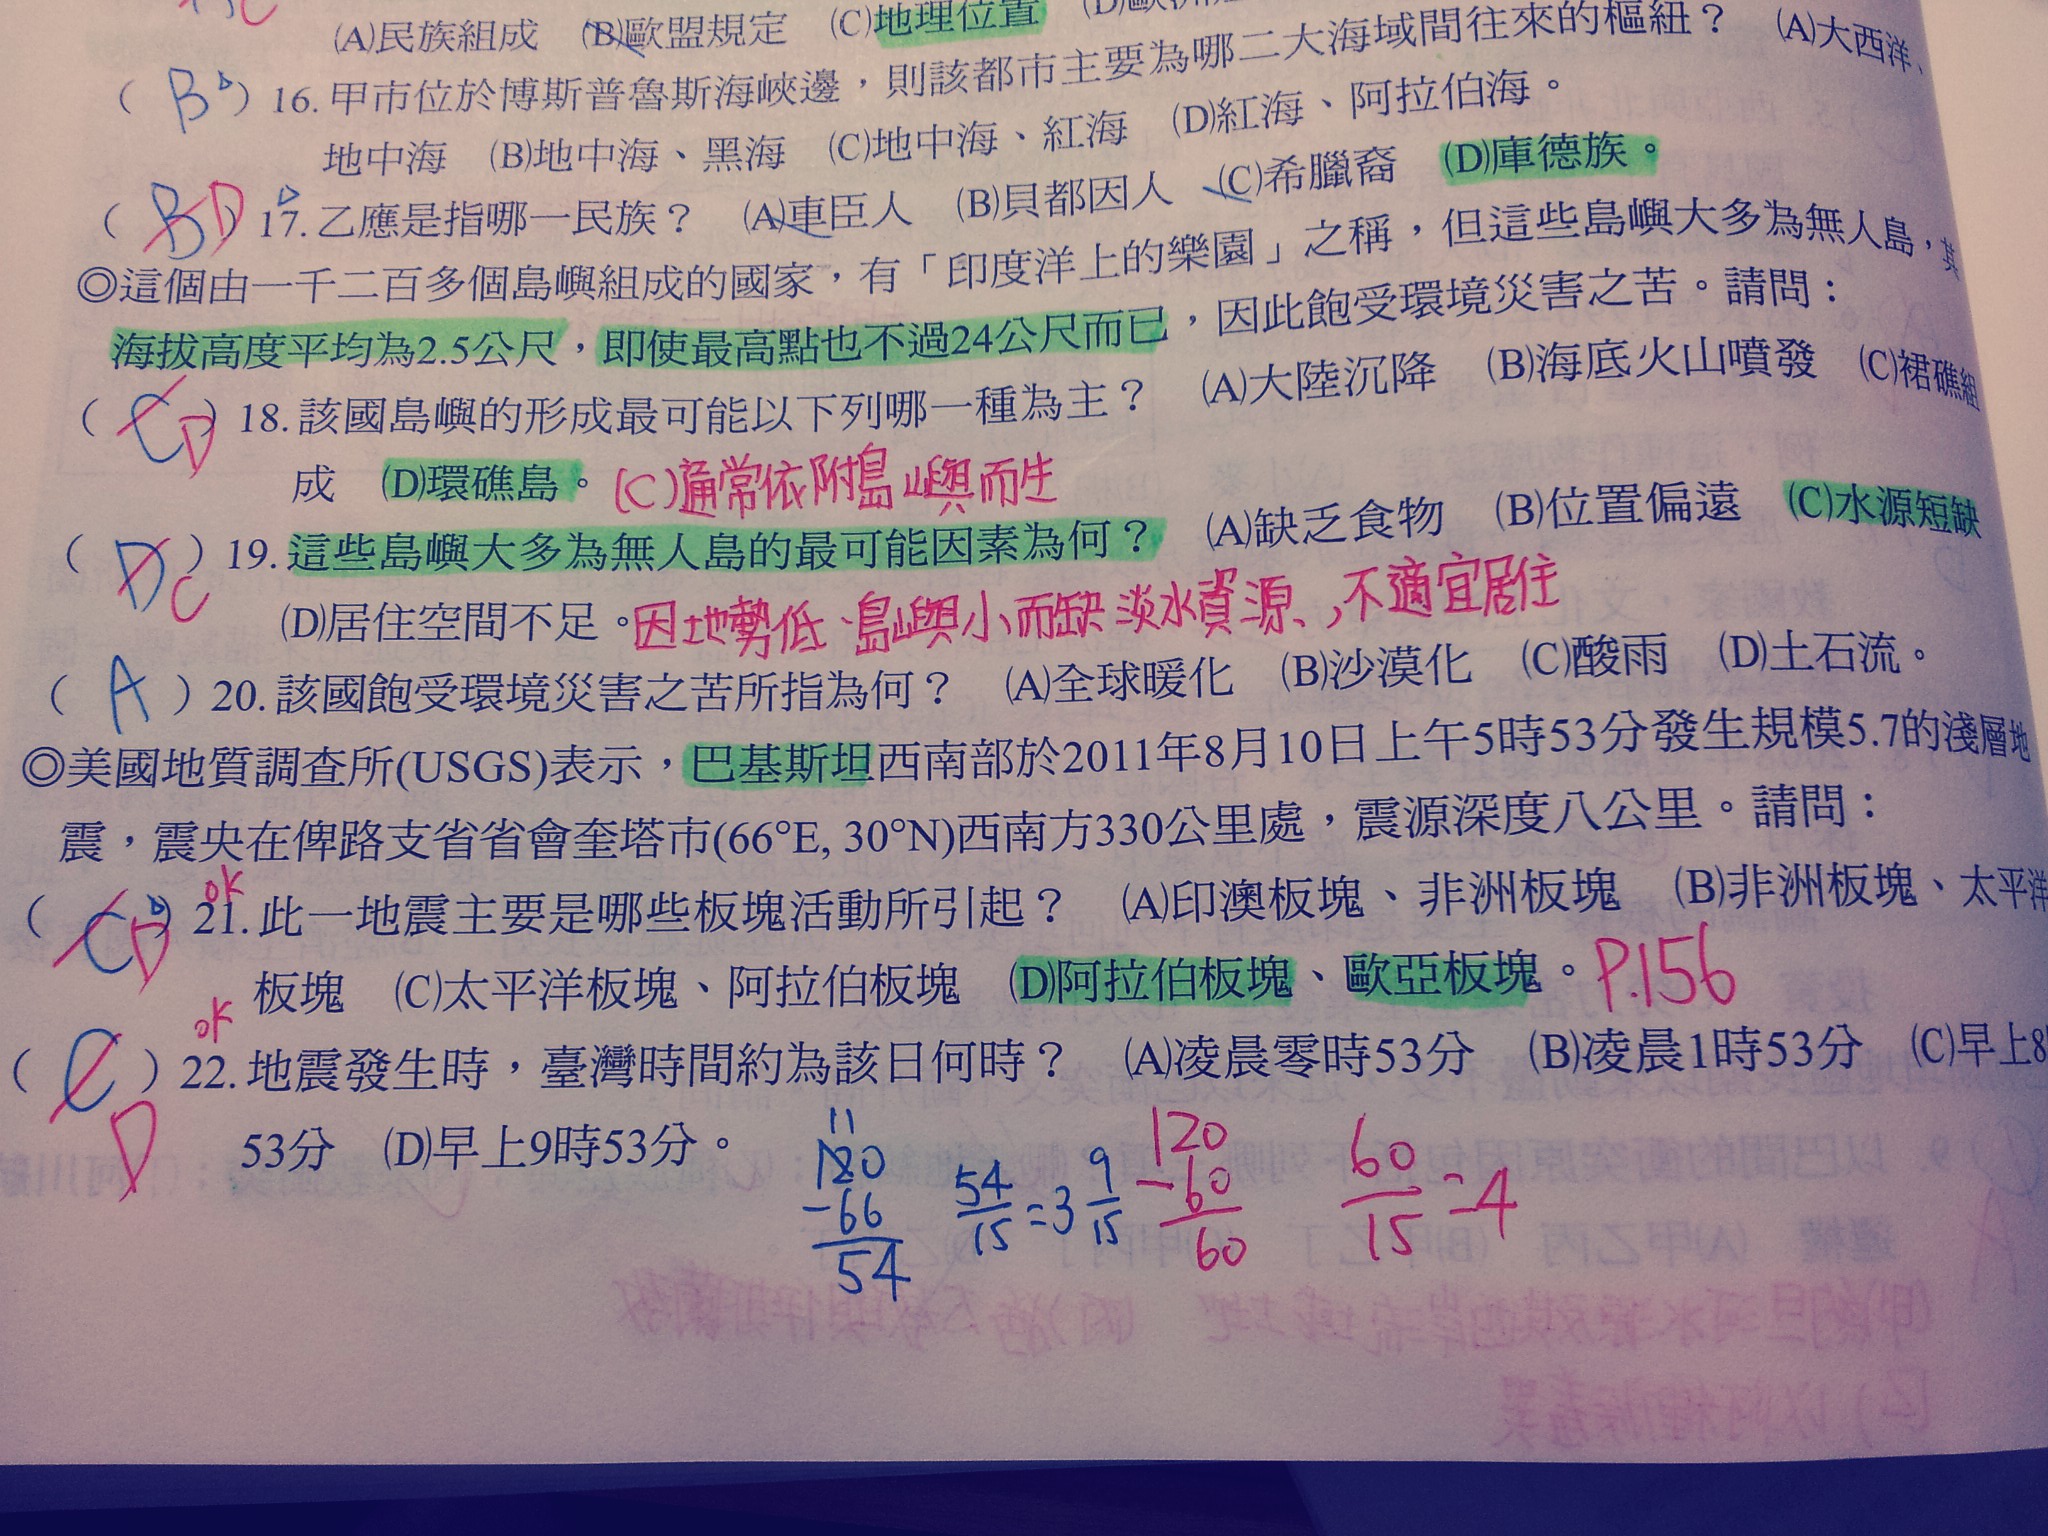 (A)民族組成 (B)歐盟規定 (C)地理位置
( B ) 16. 甲市位於博斯普魯斯海峽邊，則該都市主要為哪二大海域間往來的樞紐？ (A)大西洋、
地中海 (B)地中海、黑海 (C)地中海、紅海 (D)紅海、阿拉伯海。
( B D ) 17. 乙應是指哪一民族？ (A)車臣人 (B)貝都因人 (C)希臘裔 (D)庫德族。
◎這個由一千二百多個島嶼組成的國家，有「印度洋上的樂園」之稱，但這些島嶼大多為無人島，其
海拔高度平均為2.5公尺，即使最高點也不過24公尺而已，因此飽受環境災害之苦。請問：
( C D ) 18. 該國島嶼的形成最可能以下列哪一種為主？ (A)大陸沉降 (B)海底火山噴發 (C)裙礁組
成 (D)環礁島。 (C)通常依附島嶼而生
( D C ) 19. 這些島嶼大多為無人島的最可能因素為何？ (A)缺乏食物 (B)位置偏遠 (C)水源短缺
(D)居住空間不足。因地勢低、島嶼小而缺淡水資源，不適宜居住
( A ) 20. 該國飽受環境災害之苦所指為何？ (A)全球暖化 (B)沙漠化 (C)酸雨 (D)土石流。
◎美國地質調查所(USGS)表示，巴基斯坦西南部於2011年8月10日上午5時53分發生規模5.7的淺層地
震，震央在俾路支省省會奎塔市(66°E, 30°N)西南方330公里處，震源深度八公里。請問：
ok
( C D ) 21. 此一地震主要是哪些板塊活動所引起？ (A)印澳板塊、非洲板塊 (B)非洲板塊、太平洋
板塊 (C)太平洋板塊、阿拉伯板塊 (D)阿拉伯板塊、歐亞板塊。 P.156
ok
( C ) 22. 地震發生時，臺灣時間約為該日何時？ (A)凌晨零時53分 (B)凌晨1時53分 (C)早上8時
D
53分 (D)早上9時53分。
11
120
-66
54
54/15=3 9/15
120
-60
60
60/15=4